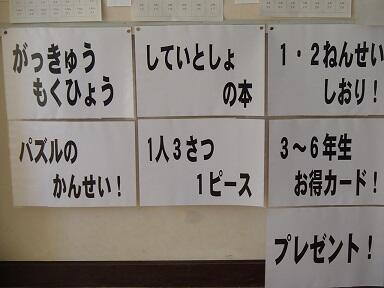 がっきゅう
もくひょう
していとしょ
の本
1・2ねんせい
しおり！
パズルの
かんせい！
1人3さつ
1ピース
3～6年生
お得カード！
プレゼント！